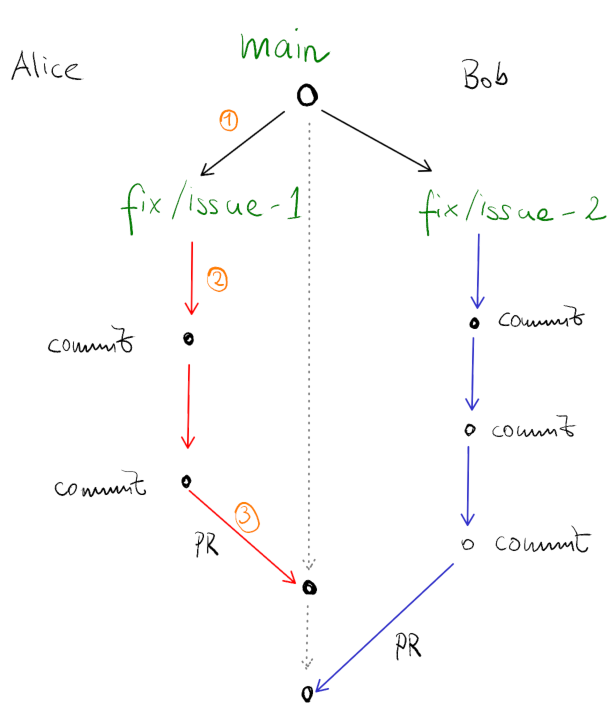 main
Alice
Bob
1
fix/issue-1
fix/issue-2
2
commit
commit
commit
commit
3
PR
commit
PR